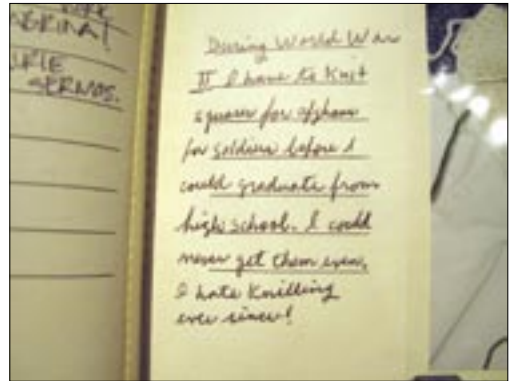 AGRINA!
SERMOS.
During World War
II I have to Knit
squares for afghans
for soldiers before I
could graduate from
high school. I could
never get them even.
I hate Knitting
ever since!